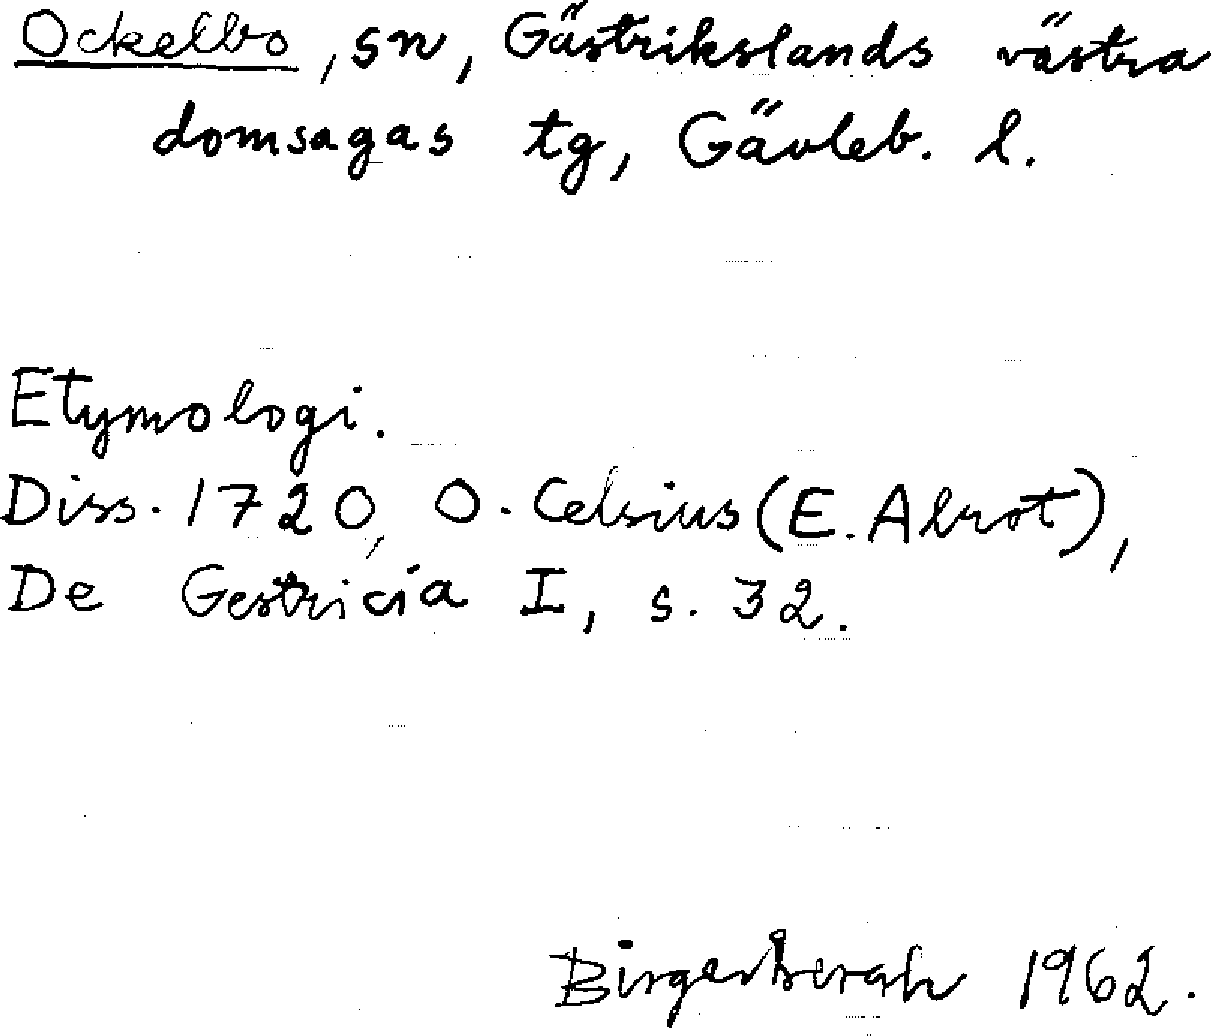 Ockelbo, sn, Gästrikslands västra
domsagas tg, Gävleb. l.
Etymologi.
Diss. 1720, O. Celsius (E. Abrot),
De Gestricia I, s. 32.
1962.